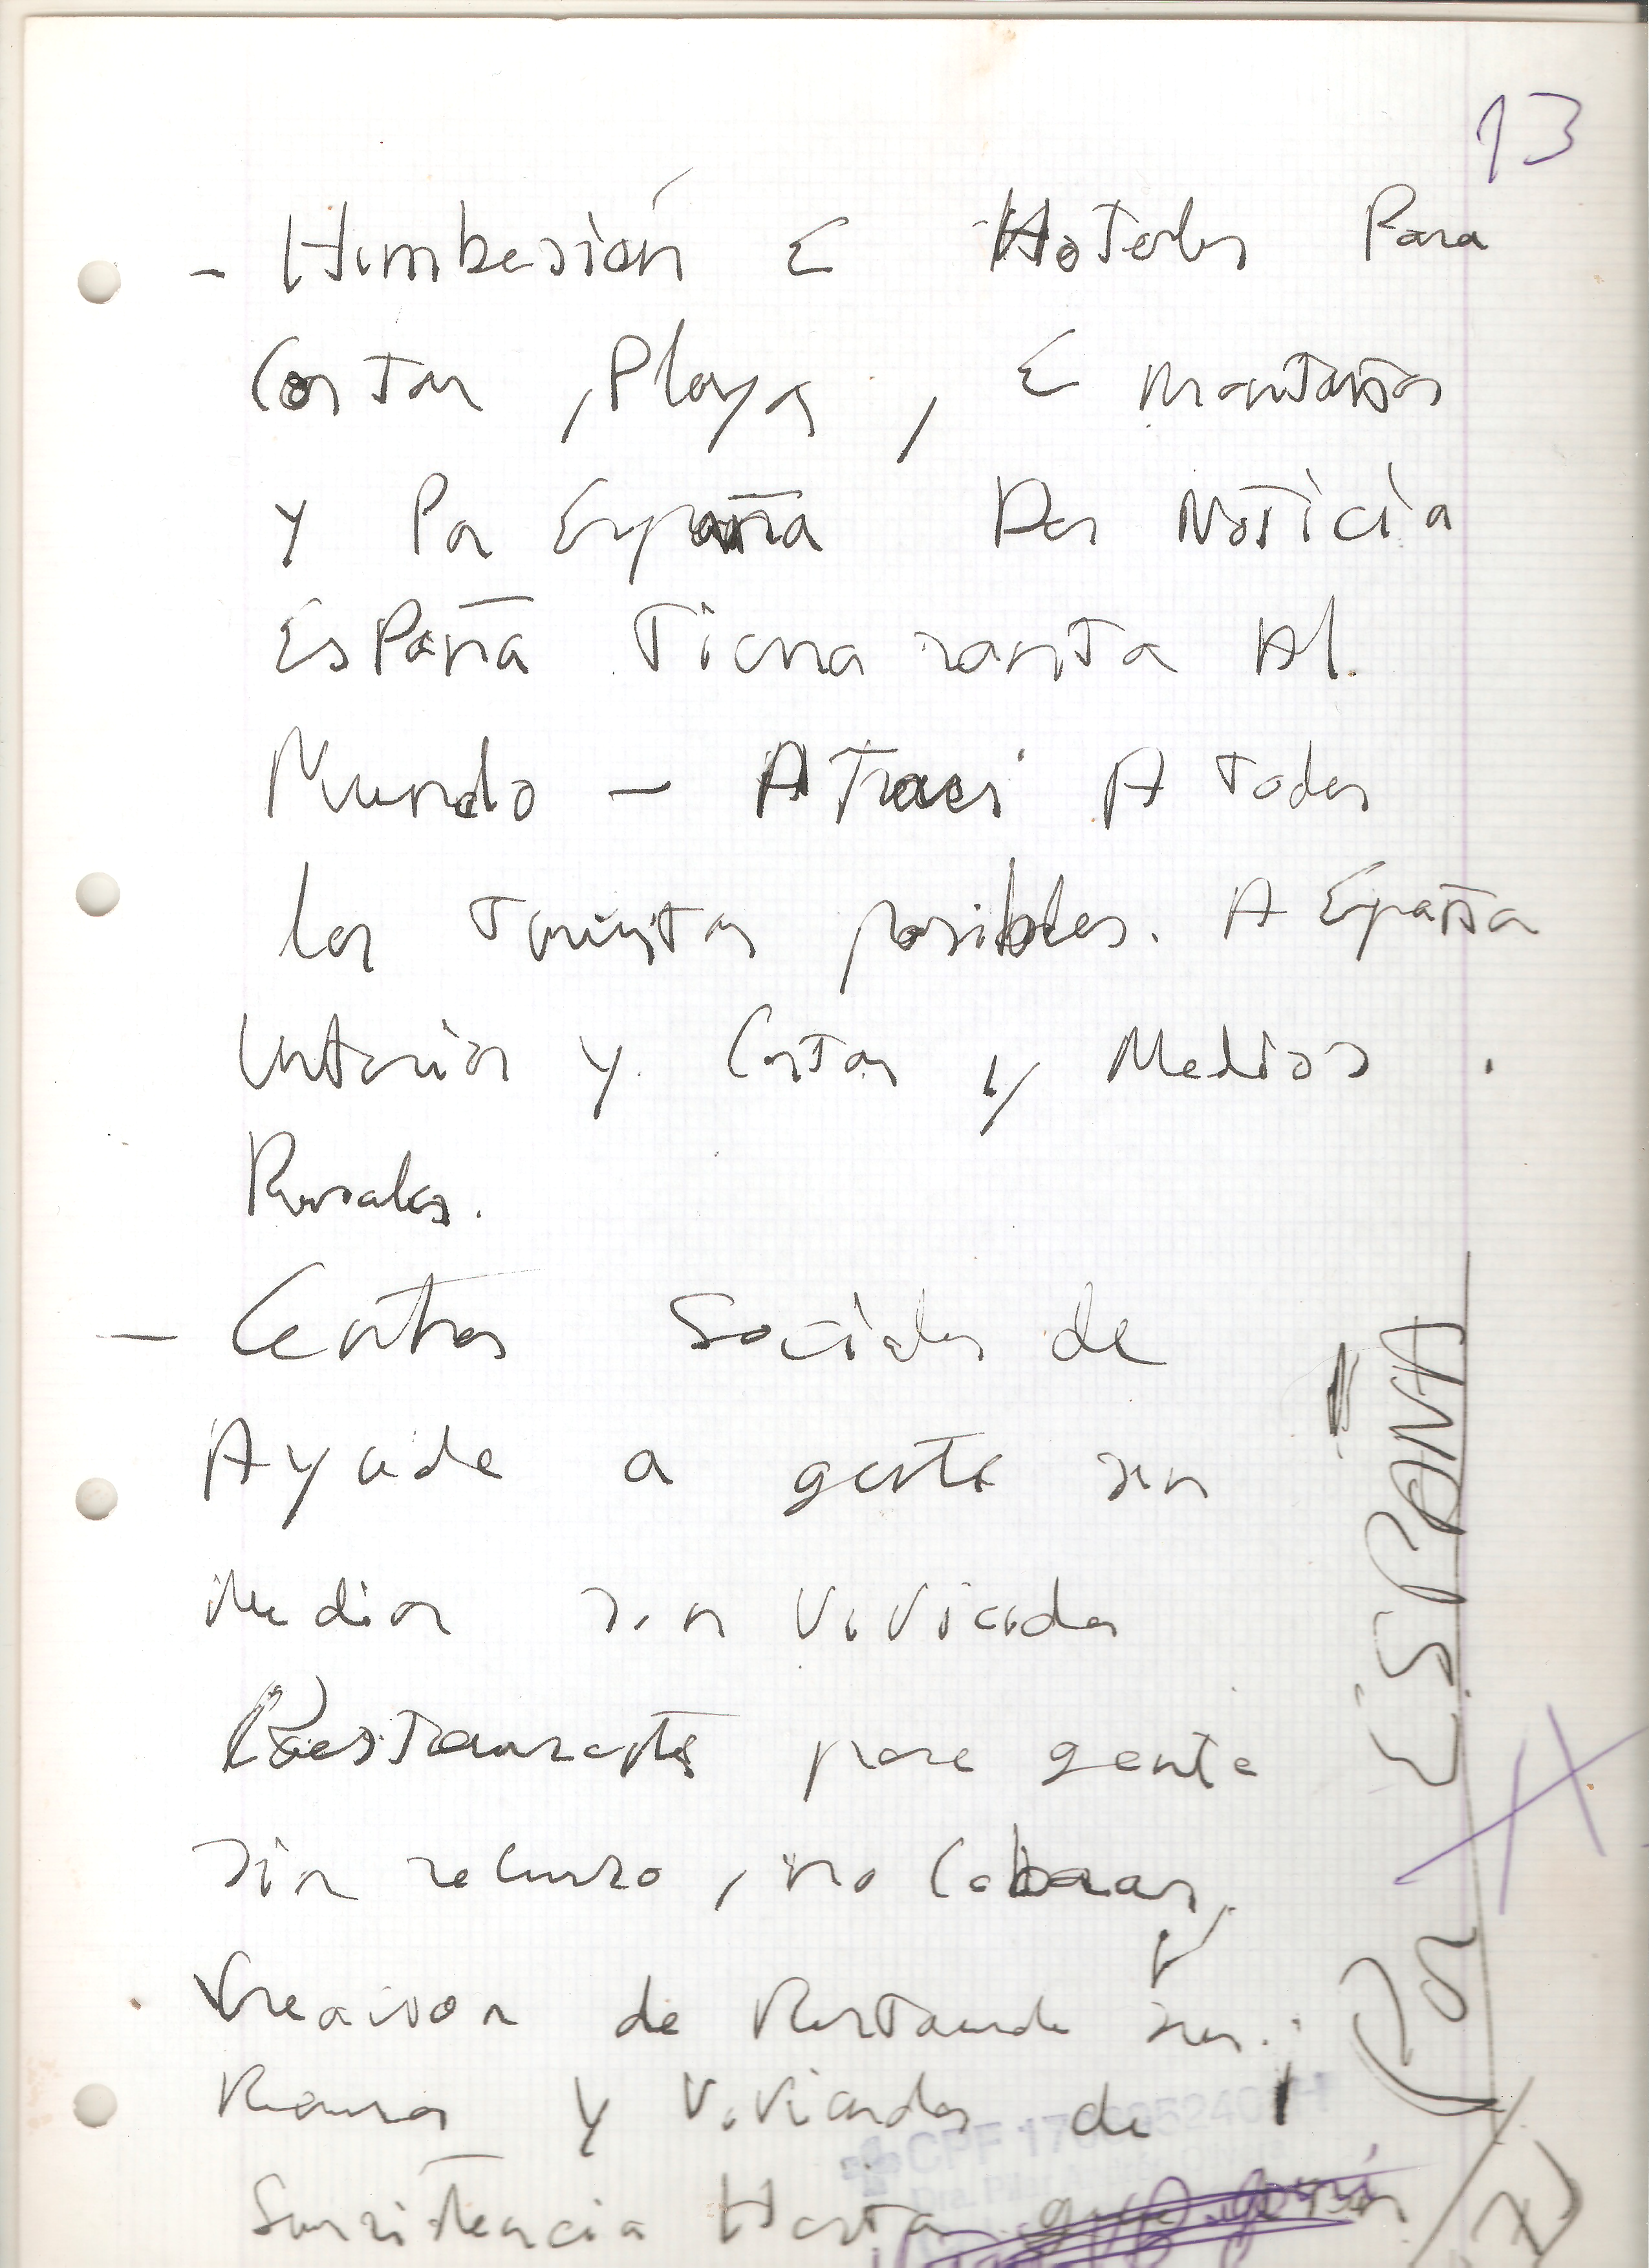 13
- Himbesión E Hoteles Para
Costas, Playas, E montañas
y Por España Dar Noticia
España Tiene renta Al
Mundo - Atraer A Todos
los Turistas posibles. A España
Interior y Costas y Medios
Rurales.
- Centros Sociales de
Ayuda a gente sin
Medios sin Vivienda
Restaurantes para gente
sin recurso, no Cobrar,
Creaison de
y Viviendas de
Hasta
Por ESPAÑA
CPF